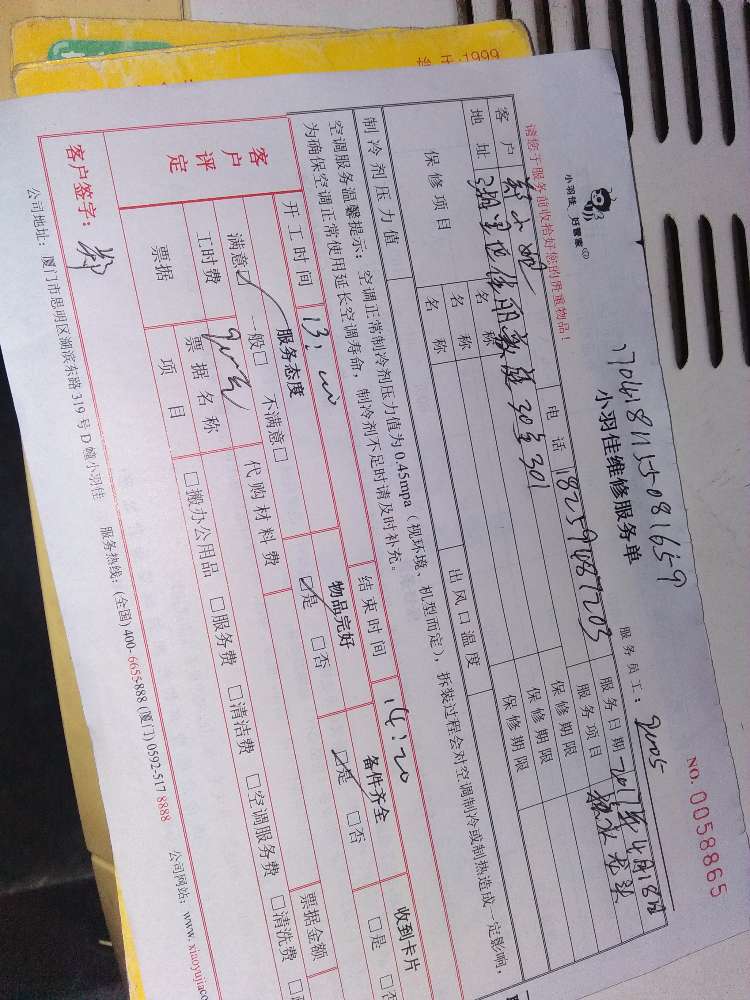 小羽佳 好管家
1704181155081659
小羽佳维修服务单
NO. 0058865
请您于服务前收拾好您的贵重物品!
服务员工:
客户 郑小姐 电话 18259087203 服务日期 2017年4月18日
地址 30号301 服务项目
保修项目 名称 保修期限
名称 保修期限
名称 保修期限
制冷剂压力值 出风口温度
空调服务温馨提示:空调正常制冷剂压力值为 0.45mpa(视环境、机型而定),拆装过程会对空调制冷或制热造成一定影响,
为确保空调正常使用延长空调寿命,制冷剂不足时请及时补充。
开工时间 13:00 结束时间 14:20
客户评定 服务态度 物品完好 备件齐全 收到卡片
满意☑ 一般□ 不满意□ ☑是 □否 ☑是 □否 □是 □否
工时费 代购材料费 票据金额
票据 票据名称
项目 □搬办公用品 □服务费 □清洁费 □空调服务费 □清洗费
客户签字: 郑
公司地址:厦门市思明区湖滨东路 319 号 D 幢小羽佳 服务热线:(全国) 400-6655-888 (厦门) 0592-517 8888 公司网站:www.xiaoyujia
1999